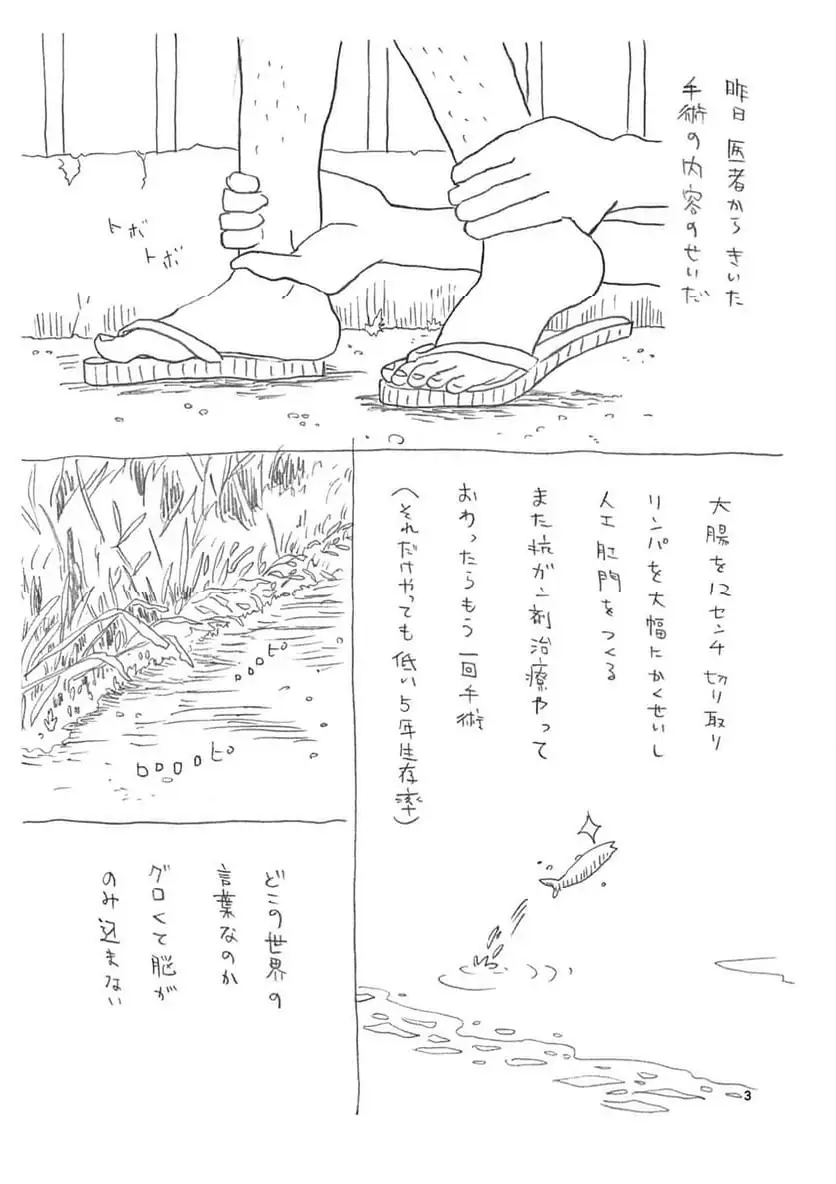 昨日 医者から きいた
手術の内容のせいだ
トボ
トボ
大腸を12センチ 切り取り
リンパを大幅にかくせいし
人工 肛門をつくる
また抗ガン剤治療やって
おわったらもう一回手術
(それだけやっても低い5年生存率)
ピロロロ
ピロロロロ
どこの世界の
言葉なのか
グロくて脳が
のみ込まない
3